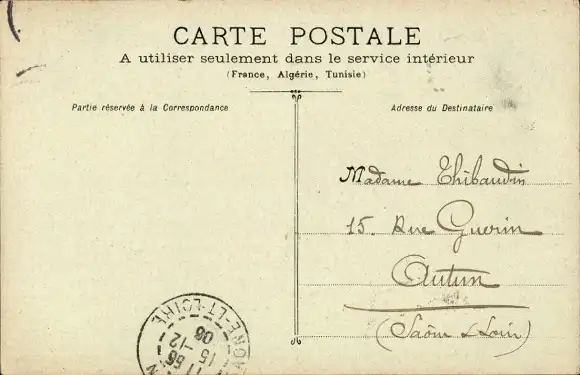 CARTE POSTALE
A utiliser seulement dans le service intérieur
(France, Algérie, Tunisie)
Partie réservée à la Correspondance
Adresse du Destinataire
Madame Thibaudin
15. Rue Guerin
Autun
(Saône & Loire)
ONE-ET-LOIRE
15 -12
06